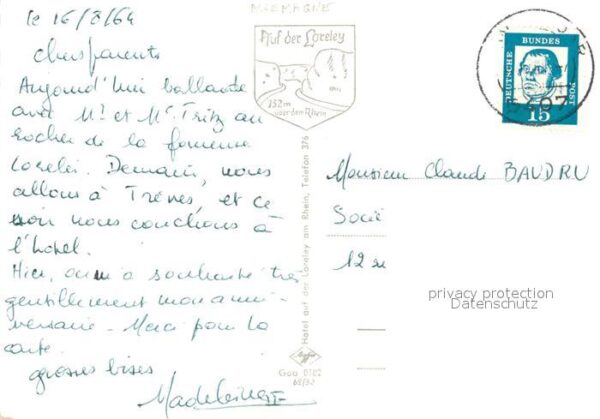 le 16/8/64
chers parents
Aujourd'hui ballade
avec Mr et Me Fritz au
rocher de la fameuse
Lorelei. Demain, nous
allons à Trèves, et ce
soir nous couchons à
l'hôtel.
Hier, on m'a souhaité très
gentillement mon anni-
versaire - Merci pour la
carte.
grosses bises
Madeleine
ALLEMAGNE
Auf der Loreley
132 m
über dem Rhein
Hotel auf der Loreley am Rhein, Telefon 376
Agfa
Goa 0102
DEUTSCHE BUNDESPOST
15
Monsieur Claude BAUDRU
Socié
12
privacy protection
Datenschutz